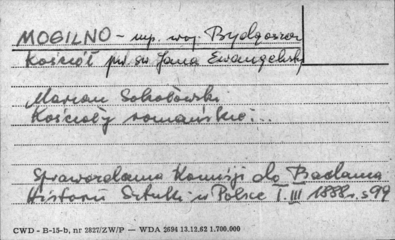 MOGILNO - mp. woj. Bydgoszcz
Kościół pw. św. Jana Ewangelisty
Marian Sokołowski
Kościoły romańskie...
Sprawozdania Komisji do Badania
Historii Sztuki w Polsce T. III 1888 r. s 99
CWD - B-15-b, nr 2827/ZW/P — WDA 2694 13.12.62 1.700.000